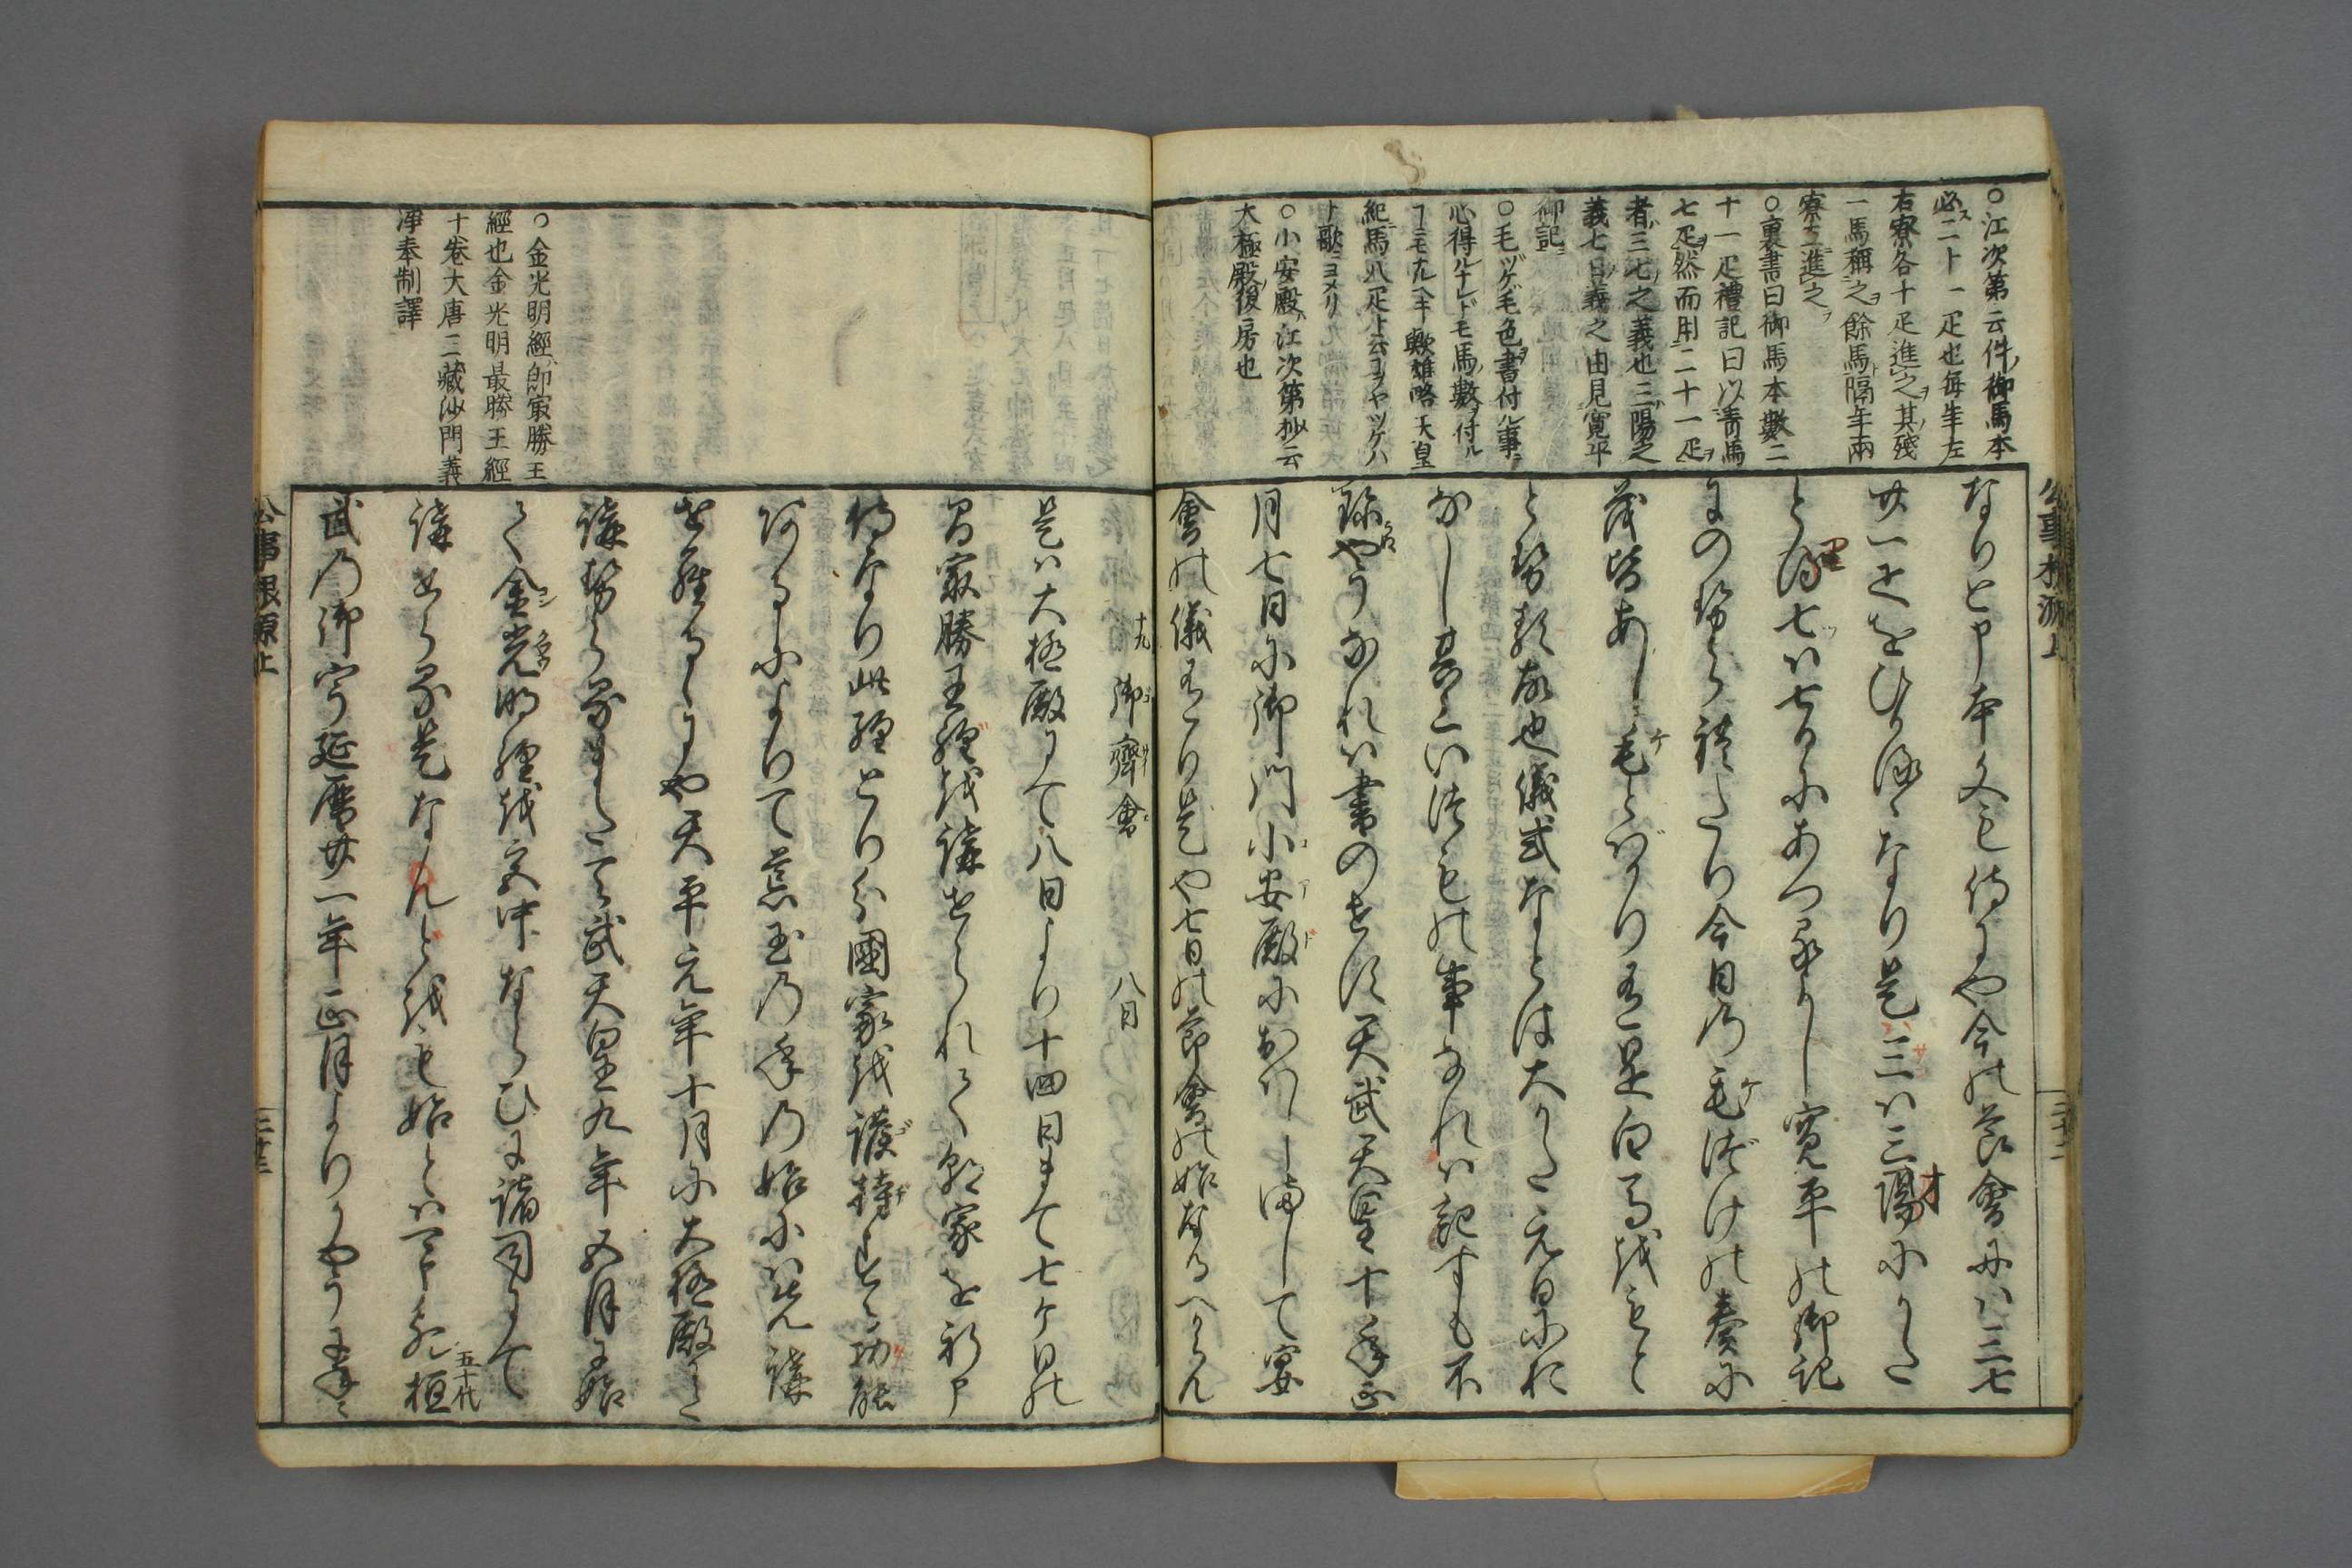 公事根源上
○江次第云件御馬本
必二十一疋也毎年左
右寮各十疋進之其残
一馬稱之餘馬隔年兩
寮互進之
○裏書曰御馬本數二
十一疋禮記曰以青馬
七疋然而用二十一疋
者三七之義也三陽之
義七日義之由見寛平
御記
○毛ヅゲ毛色書付ル事ニ
心得ルナレドモ馬ノ數ヲ付ル
ヿモナルヘキ歟雄略天皇
紀馬八疋ト云コヲヤツゲハ
ト歌ニヨメリ
○小安殿江次第抄云
大極殿後房也
なりと申本文も侍るにや今の節會には三七
廿一疋をひかるゝなり是三は三陽にかたと
とり七は七日にあつるよし寛平の御記
にのせられたり今日の毛づけの奏に
茂皆あし毛とばかり有是白馬をもと
とせられ故也儀式なとは大かた元日にお
なし其こいたいもの事なれは記すも不
珍やうなれは書のせす天武天皇十年正
月七日に御門小安殿におはしまして宴
會の儀有けり是や七日の節會の始なるへからん
十九 御齋會 八日
是は大極殿にて八日より十四日まて七ケ日の
間最勝王經を講せられて朝家を祈申
侍なり此經とり分國家を護持する功能
あるによりて荒玉の年の始には先講
せらるゝにや天平元年十月に大極殿にて
講せらる又天武天皇九年五月に始
て金光明經を宮中ならひに諸司にて
講せらる是なんとをも始とは申へき桓
五十代
武の御宇延暦廿一年正月よりかやうに年〻
○金光明經即最勝王
經也金光明最勝王經
十卷大唐三藏沙門義
淨奉制譯
公事根源上